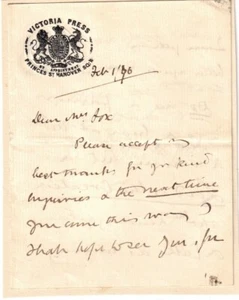 VICTORIA PRESS
PRINCES ST HANOVER SQ.
Feb 1
Dear Mrs Fox
Please accept my
best thanks for yr kind
inquiries & the next time
you come this way
I shall hope to see you, for